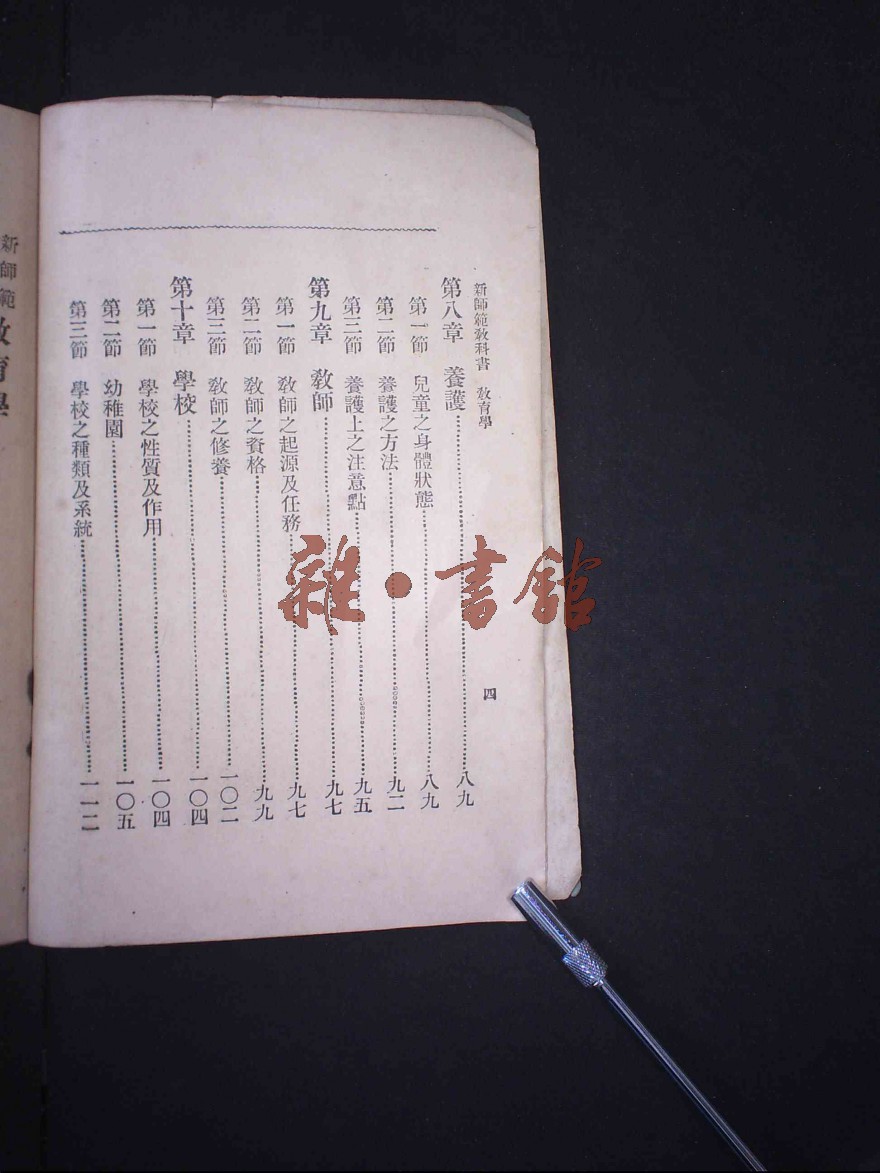 新師範教科書 教育學
四
第八章 養護……八九
第一節 兒童之身體狀態……八九
第二節 養護之方法……九二
第三節 養護上之注意點……九五
第九章 教師……九七
第一節 教師之起源及任務……九七
第二節 教師之資格……九九
第三節 教師之修養……一〇二
第十章 學校……一〇四
第一節 學校之性質及作用……一〇四
第二節 幼稚園……一〇五
第三節 學校之種類及系統……一一二
新師範
教育學
雜·書館